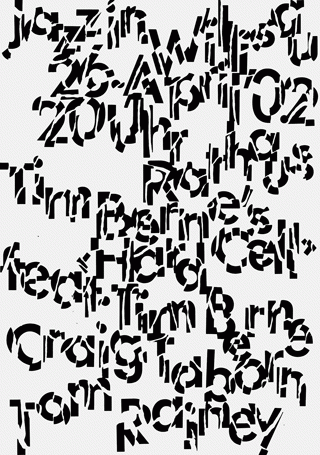 jazz in Willisau
26. April 02
20 Uhr
Rathaus
Tim
Berne's
"Hard Cell"
feat. Tim Berne
Craig Taborn
Tom Rainey